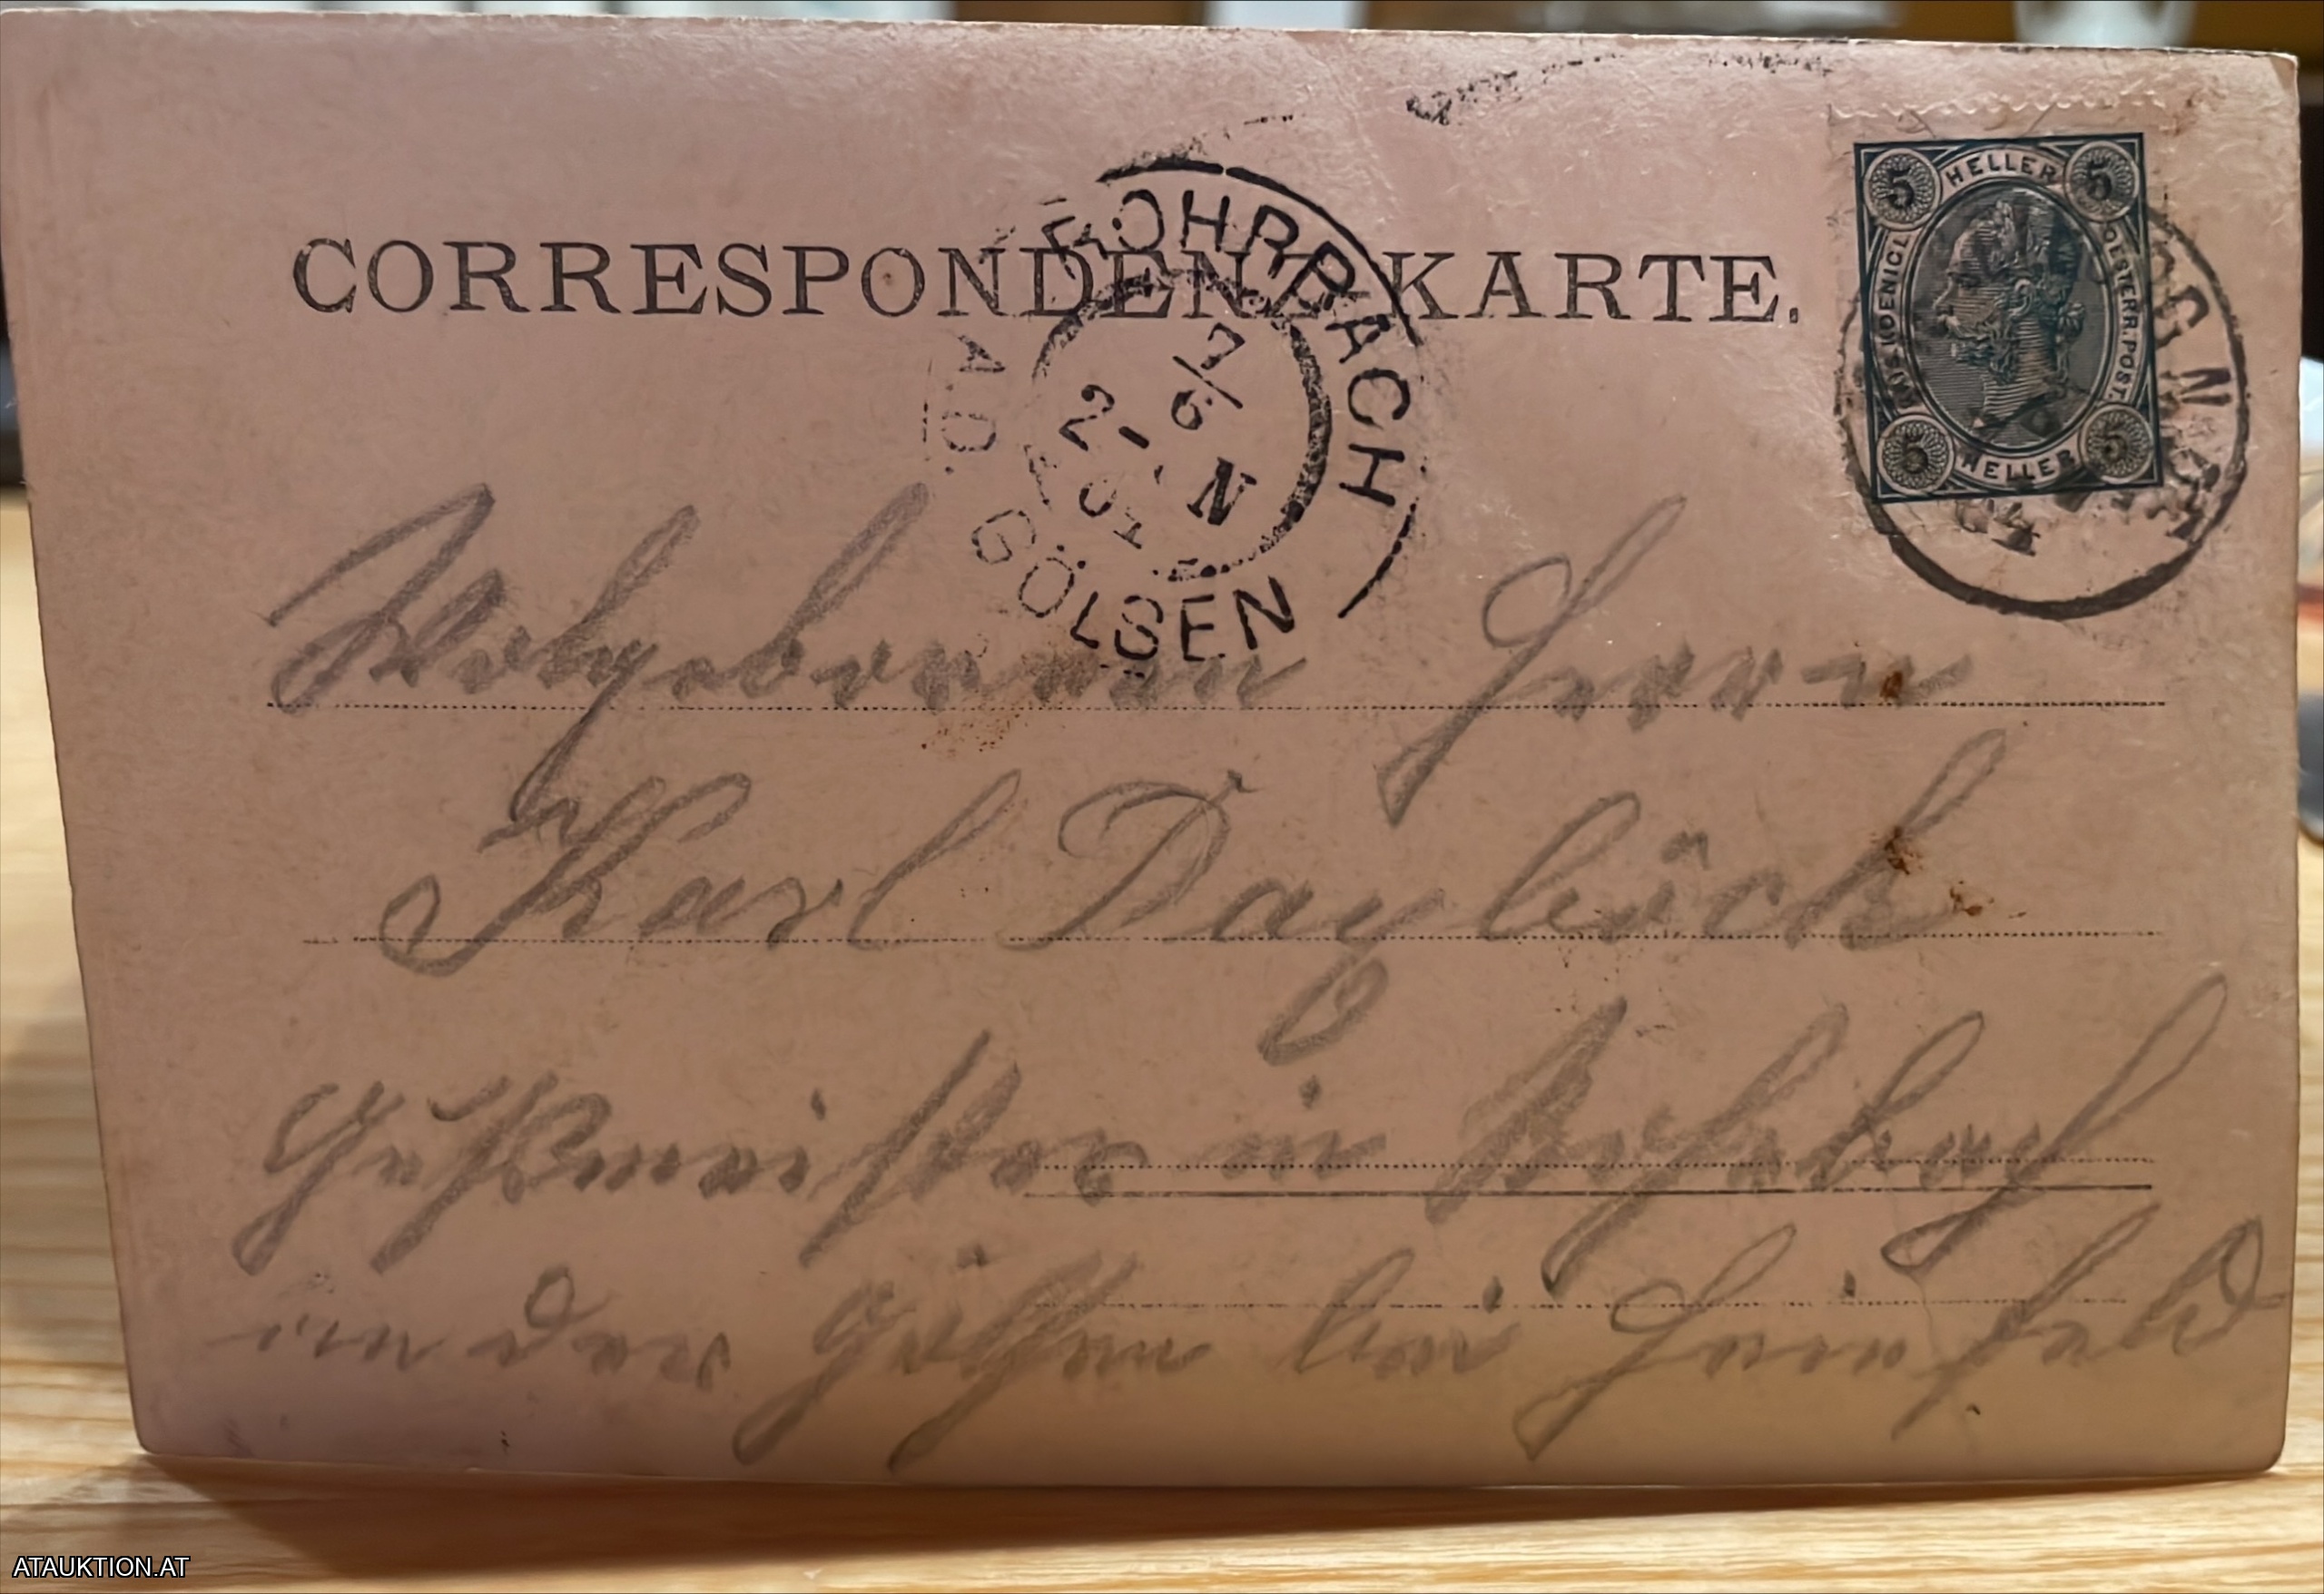 CORRESPONDENZ-KARTE.
ROHRBACH
A.D. GÖLSEN
7/6
2- N
01
5 HELLER 5
KAIS. KOENIGL. OESTERR. POST.
5 HELLER 5
Wolgeborenen Herrn
Karl Dayböck
Gußmeister in Rohrbach
in der Gölsen bei Hainfeld
ATAUKTION.AT